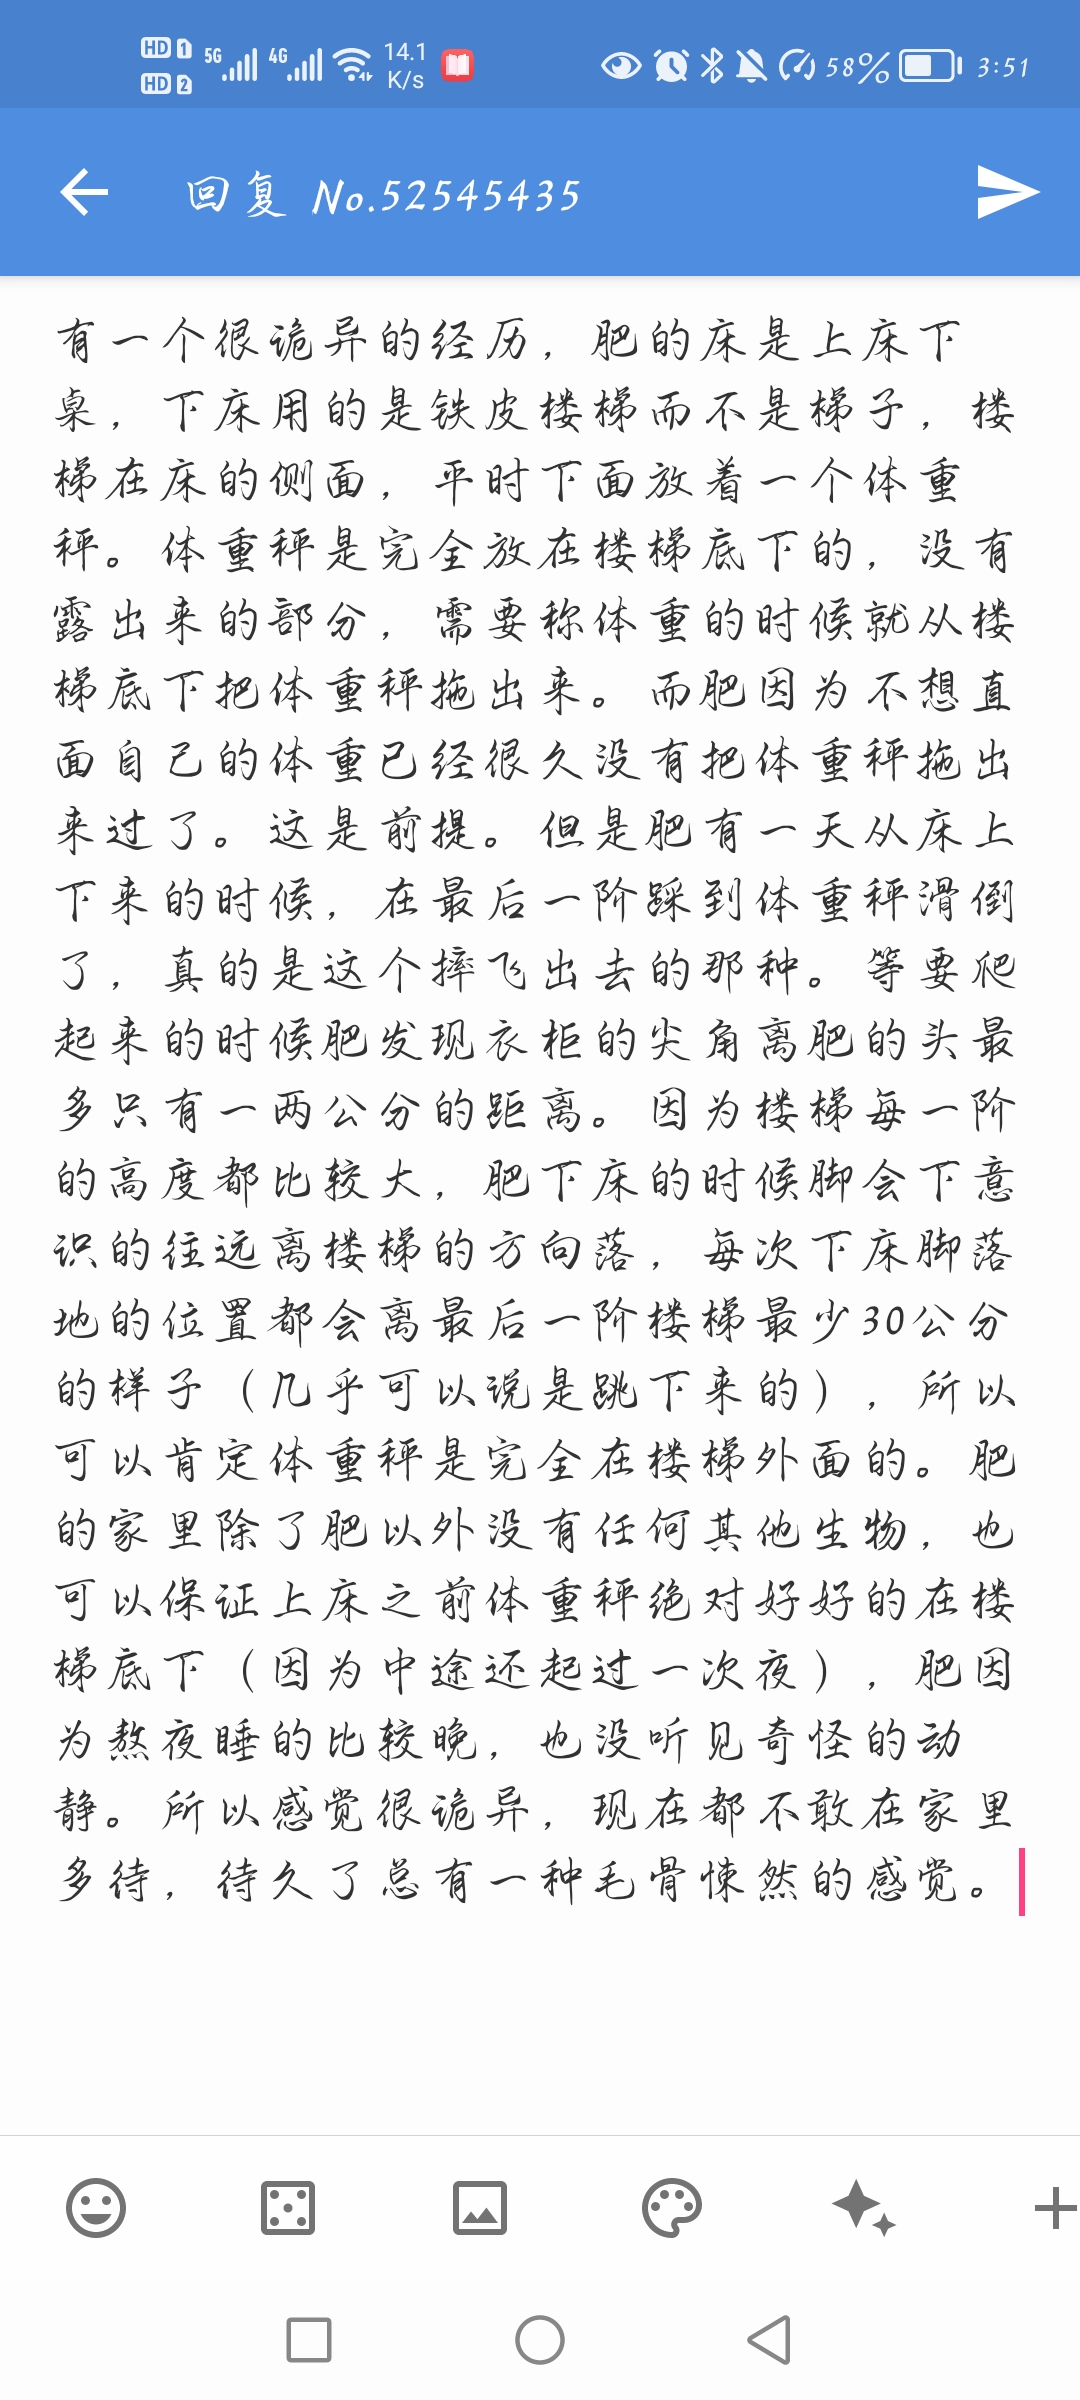 HD 1 5G 4G 14.1 58% 3:51
HD 2 K/s
回复 No.52545435
有一个很诡异的经历，肥的床是上床下
桌，下床用的是铁皮楼梯而不是梯子，楼
梯在床的侧面，平时下面放着一个体重
秤。体重秤是完全放在楼梯底下的，没有
露出来的部分，需要称体重的时候就从楼
梯底下把体重秤拖出来。而肥因为不想直
面自己的体重已经很久没有把体重秤拖出
来过了。这是前提。但是肥有一天从床上
下来的时候，在最后一阶踩到体重秤滑倒
了，真的是这个摔飞出去的那种。等要爬
起来的时候肥发现衣柜的尖角离肥的头最
多只有一两公分的距离。因为楼梯每一阶
的高度都比较大，肥下床的时候脚会下意
识的往远离楼梯的方向落，每次下床脚落
地的位置都会离最后一阶楼梯最少30公分
的样子（几乎可以说是跳下来的），所以
可以肯定体重秤是完全在楼梯外面的。肥
的家里除了肥以外没有任何其他生物，也
可以保证上床之前体重秤绝对好好的在楼
梯底下（因为中途还起过一次夜），肥因
为熬夜睡的比较晚，也没听见奇怪的动
静。所以感觉很诡异，现在都不敢在家里
多待，待久了总有一种毛骨悚然的感觉。